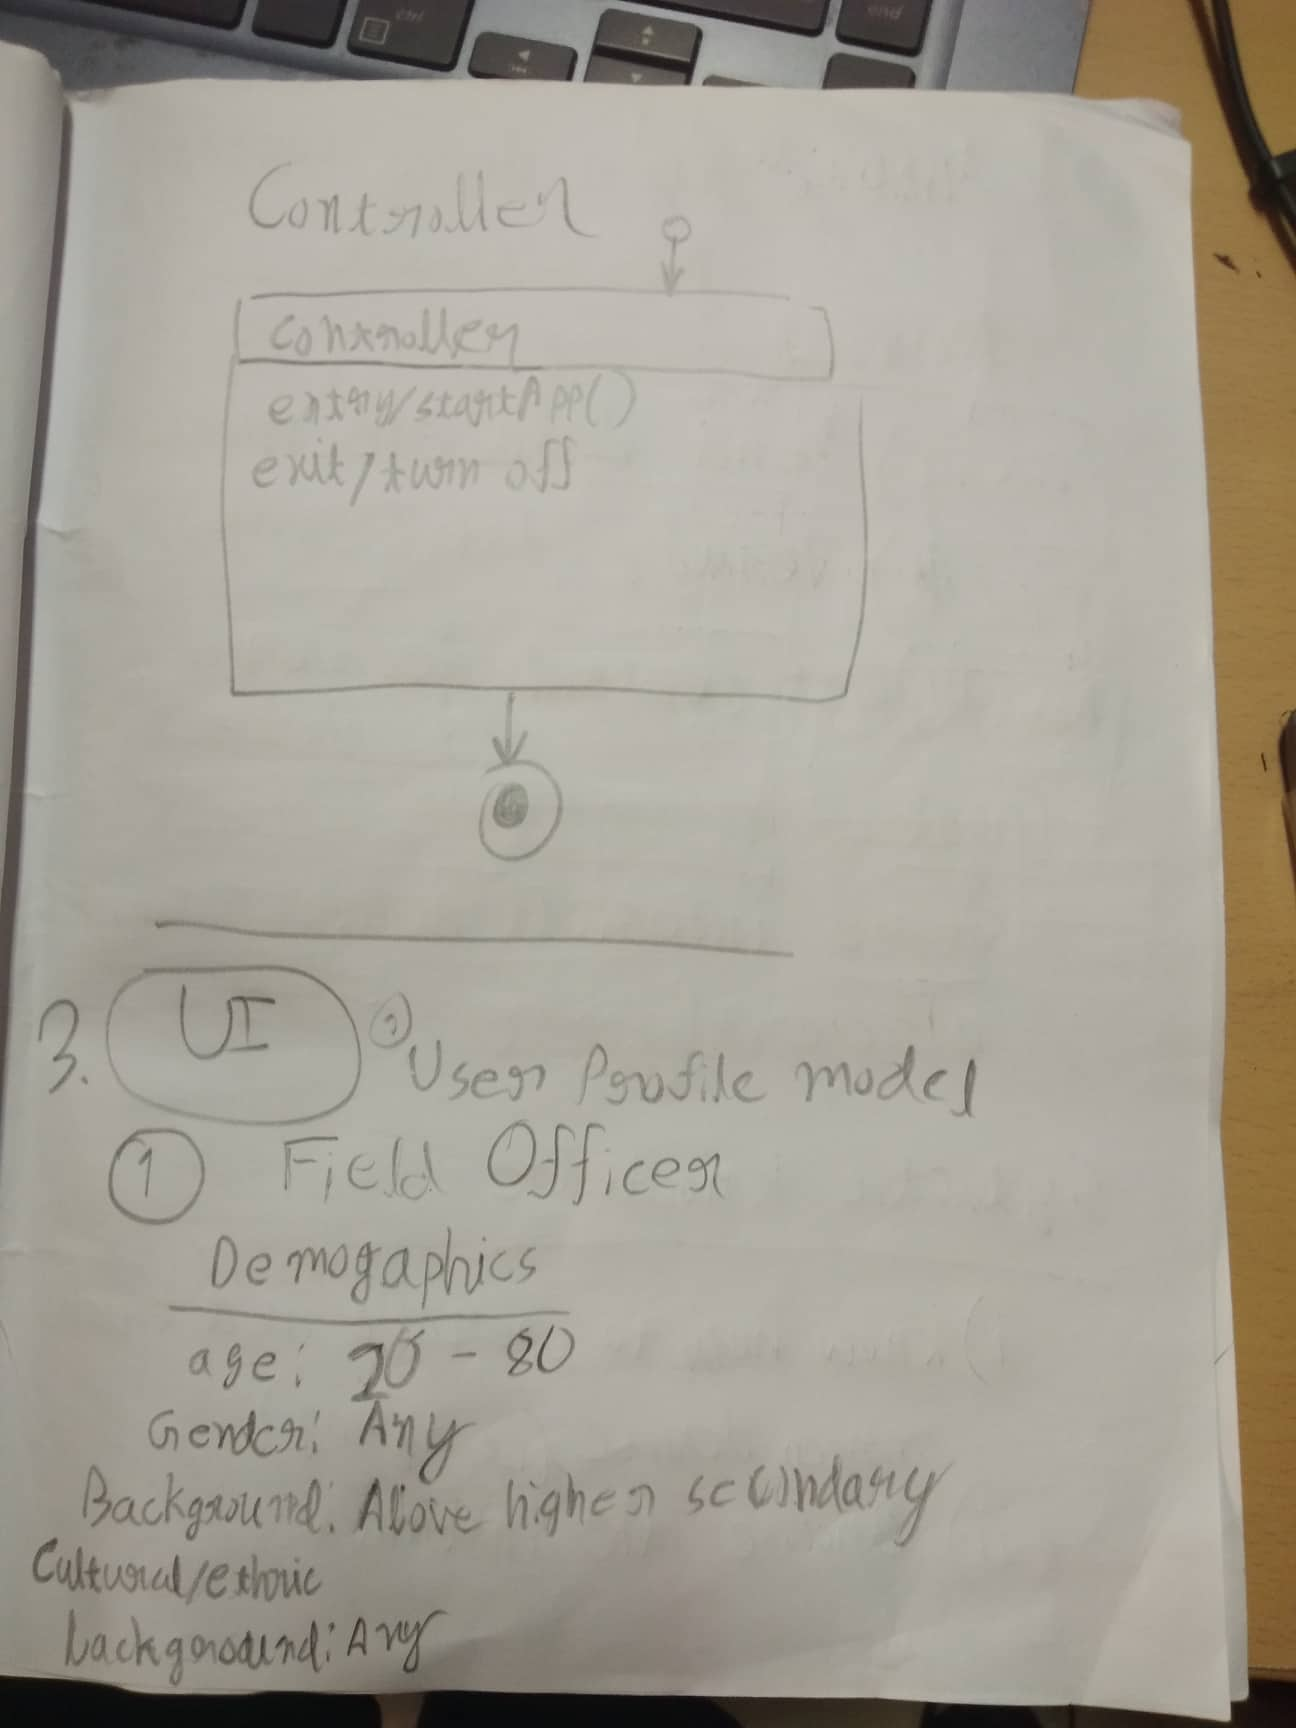 ctrl
end
Controller
Controller
entry/startApp()
exit/turn off
3. UI User Profile model
1 Field Officer
Demogaphics
age: 20 - 80
Gender: Any
Background: Above higher secondary
Cultural/ethnic
background: Any